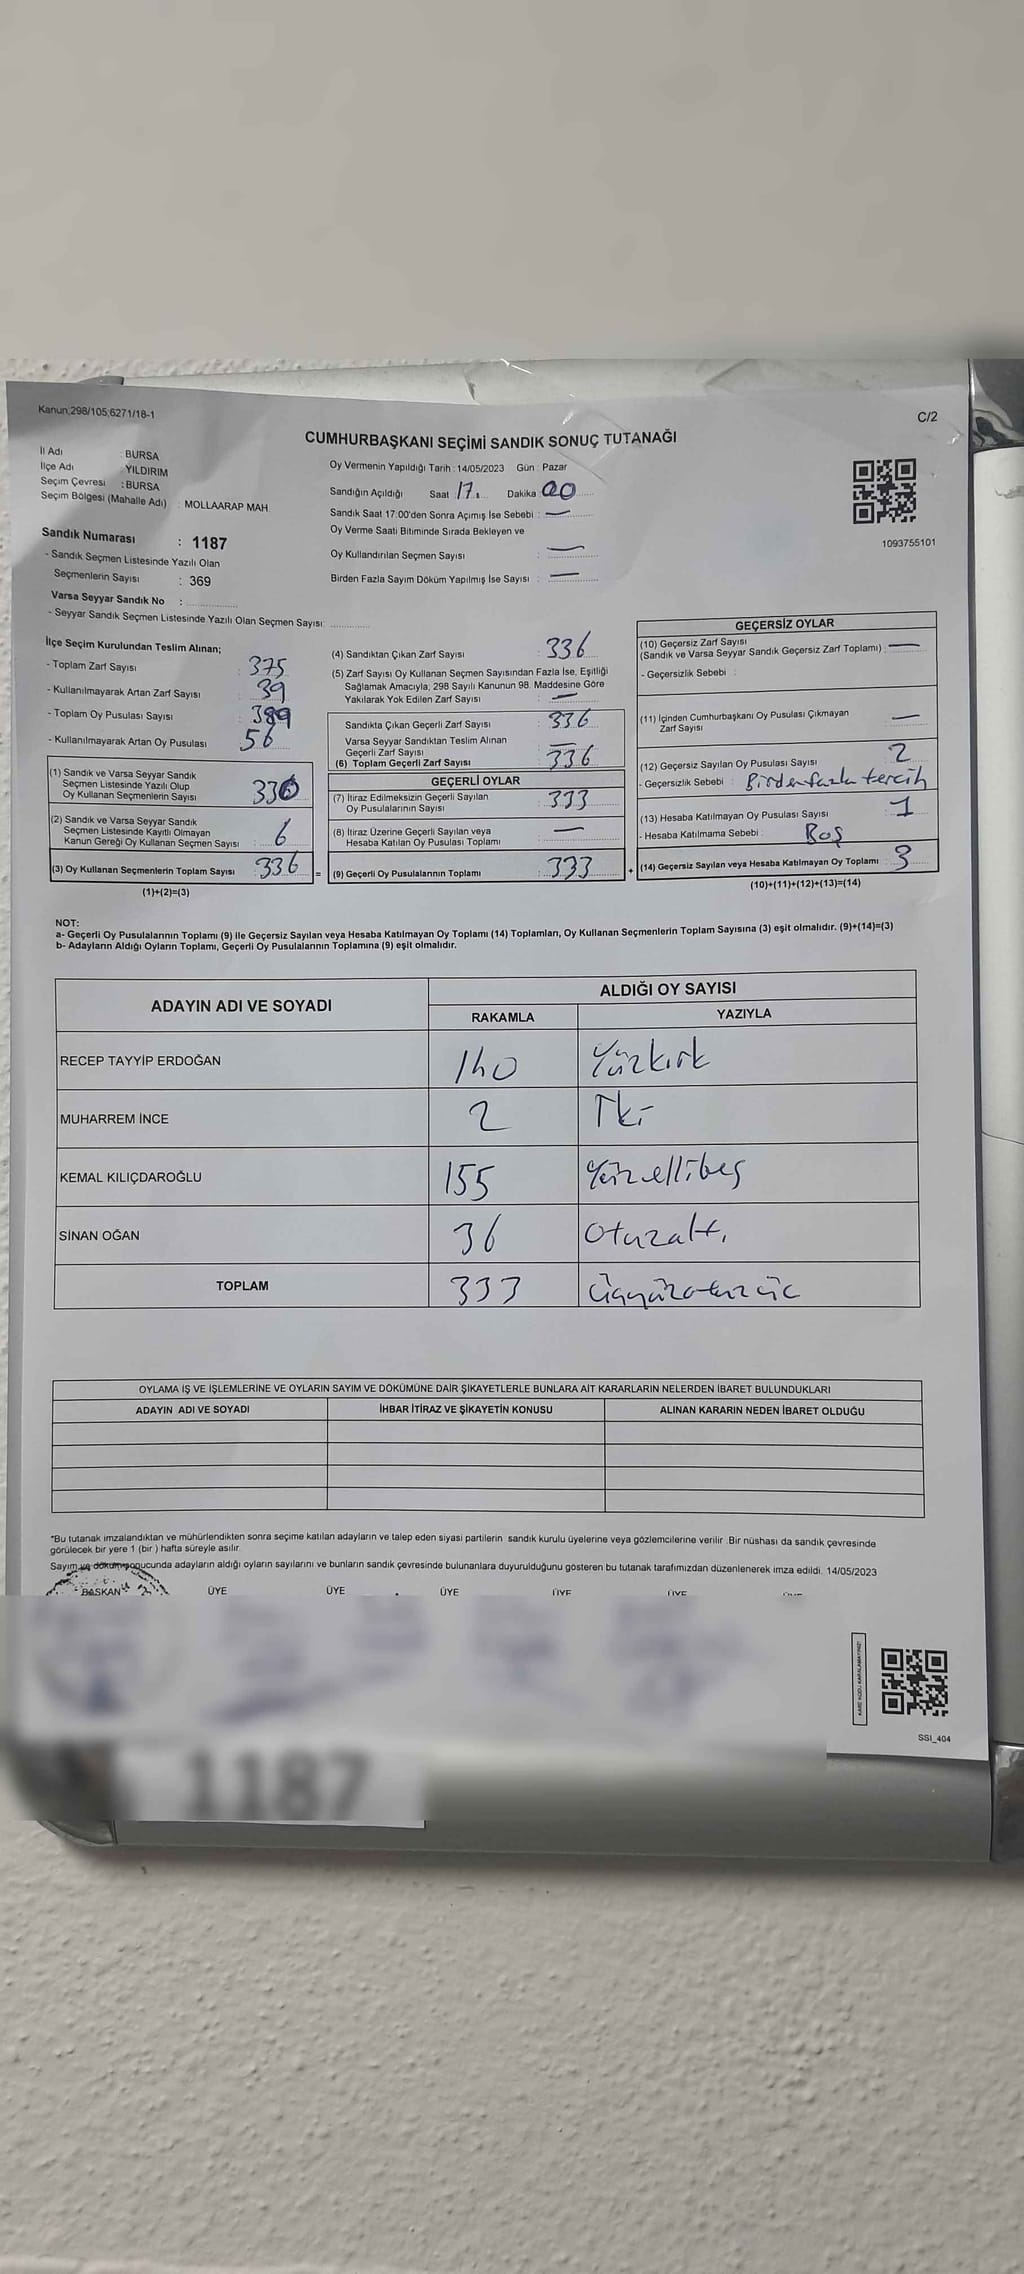 Kanun;298/105;6271/18-1
C/2
CUMHURBAŞKANI SEÇİMİ SANDIK SONUÇ TUTANAĞI
İl Adı : BURSA
İlçe Adı : YILDIRIM
Seçim Çevresi : BURSA
Seçim Bölgesi (Mahalle Adı) : MOLLAARAP MAH.
Sandık Numarası : 1187
- Sandık Seçmen Listesinde Yazılı Olan
Seçmenlerin Sayısı : 369
Varsa Seyyar Sandık No :
- Seyyar Sandık Seçmen Listesinde Yazılı Olan Seçmen Sayısı:
Oy Vermenin Yapıldığı Tarih : 14/05/2023 Gün : Pazar
Sandığın Açıldığı Saat 17. Dakika 00
Sandık Saat 17:00'den Sonra Açımış İse Sebebi : —
Oy Verme Saati Bitiminde Sırada Bekleyen ve
Oy Kullandırılan Seçmen Sayısı : —
Birden Fazla Sayım Döküm Yapılmış İse Sayısı : —
1093755101
İlçe Seçim Kurulundan Teslim Alınan;
- Toplam Zarf Sayısı : 375
- Kullanılmayarak Artan Zarf Sayısı : 39
- Toplam Oy Pusulası Sayısı : 389
- Kullanılmayarak Artan Oy Pusulası 56
(1) Sandık ve Varsa Seyyar Sandık
Seçmen Listesinde Yazılı Olup
Oy Kullanan Seçmenlerin Sayısı : 330
(2) Sandık ve Varsa Seyyar Sandık
Seçmen Listesinde Kayıtlı Olmayan
Kanun Gereği Oy Kullanan Seçmen Sayısı : 6
(3) Oy Kullanan Seçmenlerin Toplam Sayısı : 336
(1)+(2)=(3)
(4) Sandıktan Çıkan Zarf Sayısı : 336
(5) Zarf Sayısı Oy Kullanan Seçmen Sayısından Fazla İse, Eşitliği
Sağlamak Amacıyla; 298 Sayılı Kanunun 98. Maddesine Göre
Yakılarak Yok Edilen Zarf Sayısı : —
Sandıkta Çıkan Geçerli Zarf Sayısı : 336
Varsa Seyyar Sandıktan Teslim Alınan
Geçerli Zarf Sayısı : —
(6) Toplam Geçerli Zarf Sayısı : 336
=
GEÇERLİ OYLAR
(7) İtiraz Edilmeksizin Geçerli Sayılan
Oy Pusulalarının Sayısı : 333
(8) İtiraz Üzerine Geçerli Sayılan veya
Hesaba Katılan Oy Pusulası Toplamı : —
(9) Geçerli Oy Pusulalarının Toplamı : 333
+
GEÇERSİZ OYLAR
(10) Geçersiz Zarf Sayısı
(Sandık ve Varsa Seyyar Sandık Geçersiz Zarf Toplamı) : —
- Geçersizlik Sebebi :
(11) İçinden Cumhurbaşkanı Oy Pusulası Çıkmayan
Zarf Sayısı : —
(12) Geçersiz Sayılan Oy Pusulası Sayısı : 2
- Geçersizlik Sebebi : Birden fazla tercih
(13) Hesaba Katılmayan Oy Pusulası Sayısı : 1
- Hesaba Katılmama Sebebi : Boş
(14) Geçersiz Sayılan veya Hesaba Katılmayan Oy Toplamı : 3
(10)+(11)+(12)+(13)=(14)
NOT:
a- Geçerli Oy Pusulalarının Toplamı (9) ile Geçersiz Sayılan veya Hesaba Katılmayan Oy Toplamı (14) Toplamları, Oy Kullanan Seçmenlerin Toplam Sayısına (3) eşit olmalıdır. (9)+(14)=(3)
b- Adayların Aldığı Oyların Toplamı, Geçerli Oy Pusulalarının Toplamına (9) eşit olmalıdır.
ADAYIN ADI VE SOYADI ALDIĞI OY SAYISI
RAKAMLA YAZIYLA
RECEP TAYYİP ERDOĞAN 140 Yüzkırk
MUHARREM İNCE 2 İki
KEMAL KILIÇDAROĞLU 155 Yüzellibeş
SİNAN OĞAN 36 Otuzaltı
TOPLAM 333 Üçyüzotuzüç
OYLAMA İŞ VE İŞLEMLERİNE VE OYLARIN SAYIM VE DÖKÜMÜNE DAİR ŞİKAYETLERLE BUNLARA AİT KARARLARIN NELERDEN İBARET BULUNDUKLARI
ADAYIN ADI VE SOYADI İHBAR İTİRAZ VE ŞİKAYETİN KONUSU ALINAN KARARIN NEDEN İBARET OLDUĞU
*Bu tutanak imzalandıktan ve mühürlendikten sonra seçime katılan adayların ve talep eden siyasi partilerin sandık kurulu üyelerine veya gözlemcilerine verilir. Bir nüshası da sandık çevresinde
görülecek bir yere 1 (bir ) hafta süreyle asılır.
Sayım ve döküm sonucunda adayların aldığı oyların sayılarını ve bunların sandık çevresinde bulunanlara duyurulduğunu gösteren bu tutanak tarafımızdan düzenlenerek imza edildi. 14/05/2023
BAŞKAN ÜYE ÜYE ÜYE ÜYE ÜYE
KARE KODU KARALAMAYINIZ!
SSI_404
1187